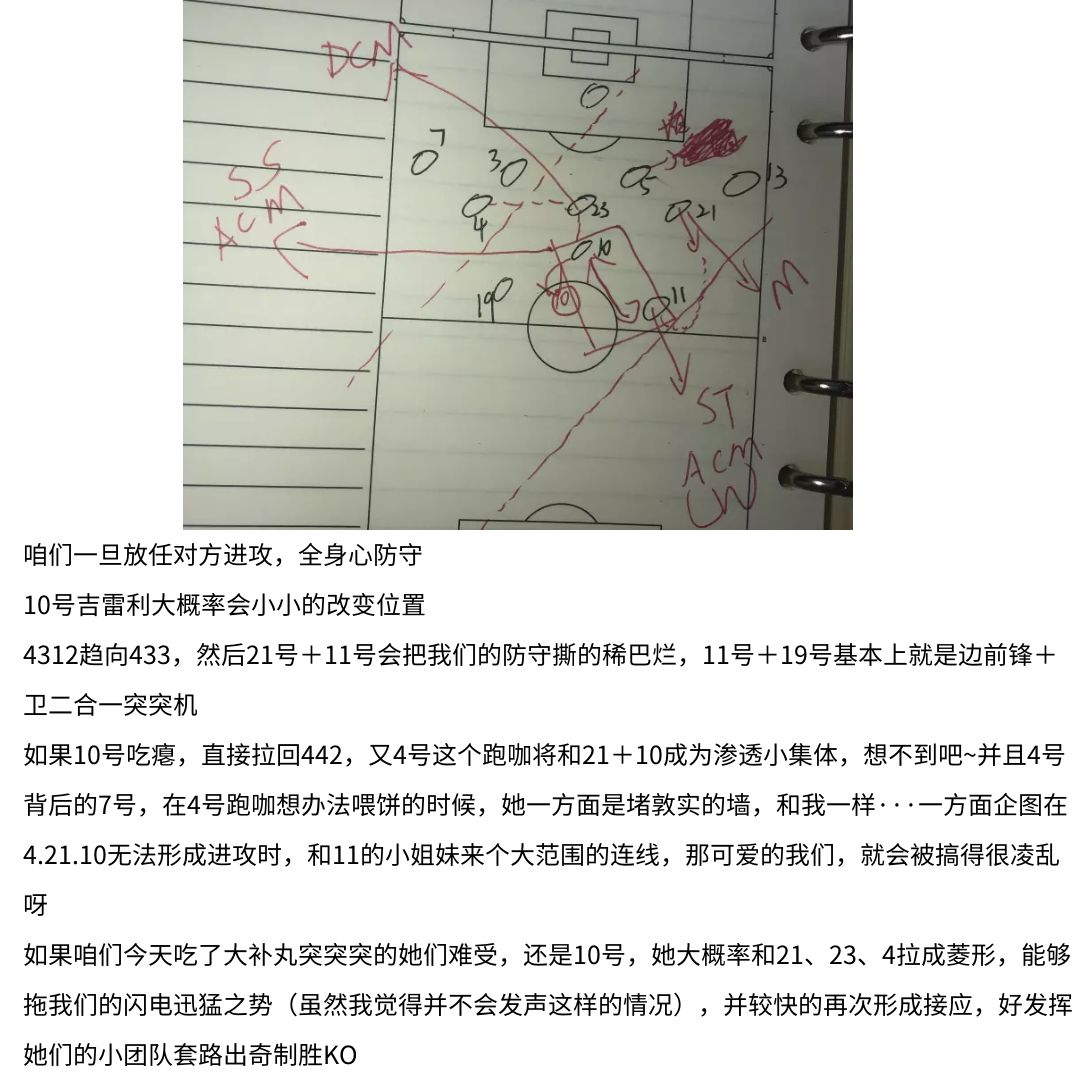 DCM
7
3
5
13
SS
ACM
4
23
21
10
M
19
10
11
ST
ACM
CW
咱们一旦放任对方进攻，全身心防守
10号吉雷利大概率会小小的改变位置
4312趋向433，然后21号＋11号会把我们的防守撕的稀巴烂，11号＋19号基本上就是边前锋＋
卫二合一突突机
如果10号吃瘪，直接拉回442，又4号这个跑咖将和21＋10成为渗透小集体，想不到吧~并且4号
背后的7号，在4号跑咖想办法喂饼的时候，她一方面是堵敦实的墙，和我一样···一方面企图在
4.21.10无法形成进攻时，和11的小姐妹来个大范围的连线，那可爱的我们，就会被搞得很凌乱
呀
如果咱们今天吃了大补丸突突突的她们难受，还是10号，她大概率和21、23、4拉成菱形，能够
拖我们的闪电迅猛之势（虽然我觉得并不会发声这样的情况），并较快的再次形成接应，好发挥
她们的小团队套路出奇制胜KO